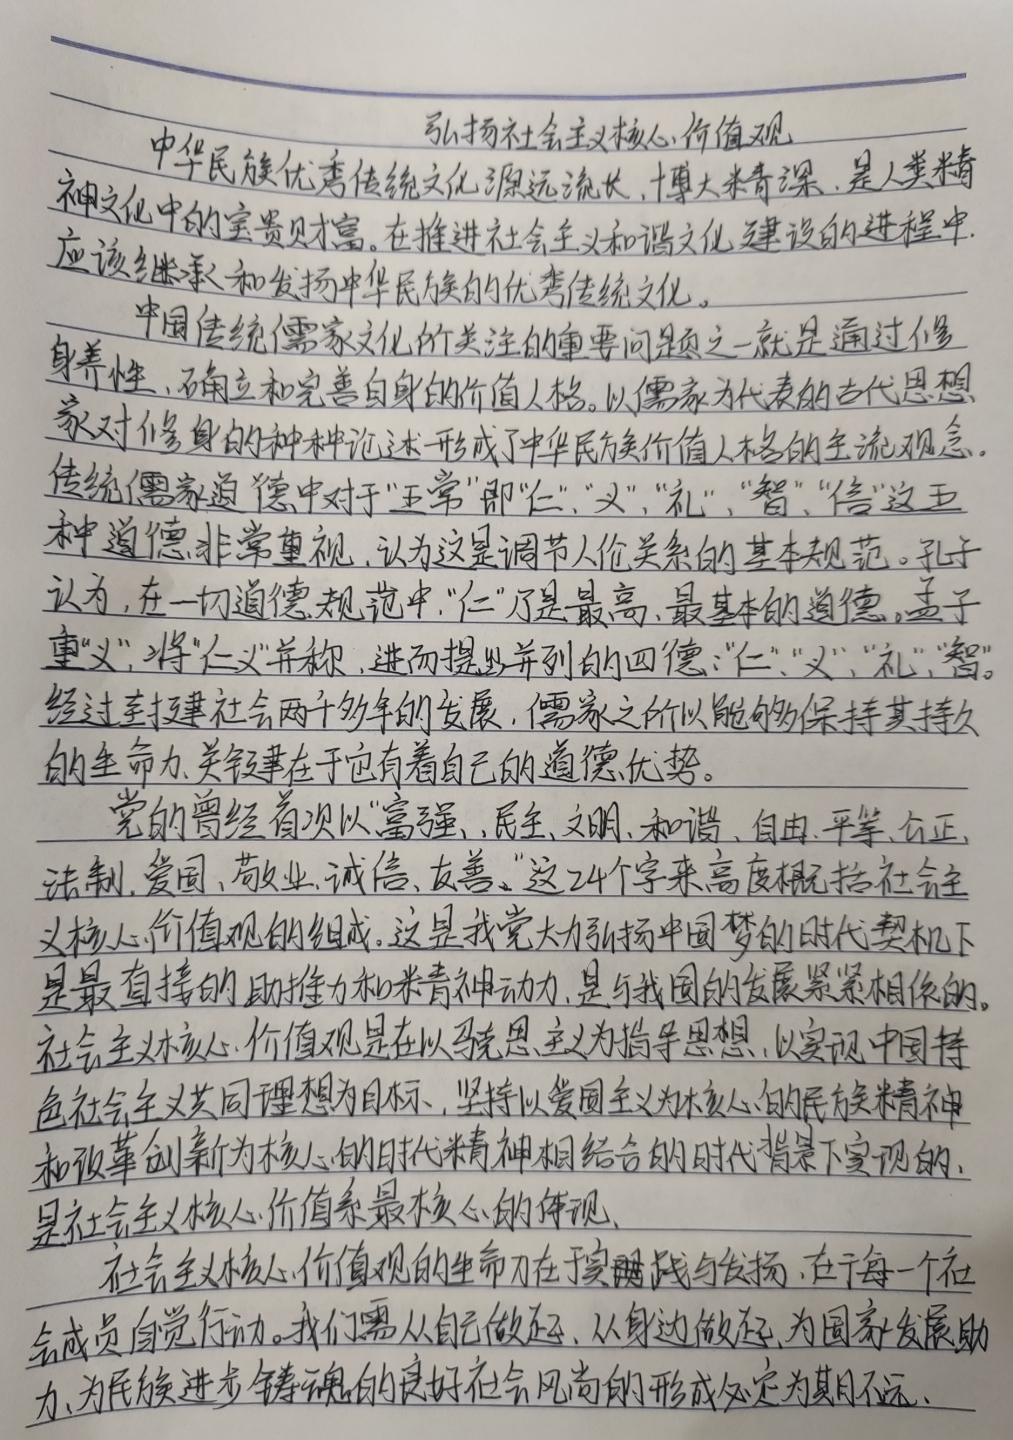 弘扬社会主义核心价值观
中华民族优秀传统文化源远流长、博大精深、是人类精
神文化中的宝贵财富。在推进社会主义和谐文化建设的进程中.
应该继承和发扬中华民族的优秀传统文化。
中国传统儒家文化所关注的重要问题之一就是通过修
身养性、确立和完善自身的价值人格。以儒家为代表的古代思想
家对修身的种种论述形成了中华民族价值人格的主流观念。
传统儒家道德中对于"五常"即"仁"、"义"、"礼"、"智"、"信"这五
种道德非常重视，认为这是调节人伦关系的基本规范。孔子
认为，在一切道德规范中，"仁"乃是最高、最基本的道德。孟子
重"义"，将"仁义"并称，进而提出并列的四德："仁"、"义"、"礼"、"智"。
经过封建社会两千多年的发展，儒家之所以能够保持其持久
的生命力、关键在于它有着自己的道德优势。
党的曾经首次以"富强、民主、文明、和谐、自由、平等、公正、
法制、爱国、敬业、诚信、友善。"这24个字来高度概括社会主
义核心价值观的组成。这是我党大力弘扬中国梦的时代契机下
是最直接的助推力和精神动力，是与我国的发展紧紧相依的。
社会主义核心价值观是在以马克思主义为指导思想，以实现中国特
色社会主义共同理想为目标、坚持以爱国主义为核心的民族精神
和改革创新为核心的时代精神相结合的时代背景下实现的、
是社会主义核心价值系最核心的体现、
社会主义核心价值观的生命力在于实践与发扬、在于每一个社
会成员自觉行动。我们需从自己做起、从身边做起、为国家发展助
力、为民族进步铸魂的良好社会风尚的形成必定为其月不远、